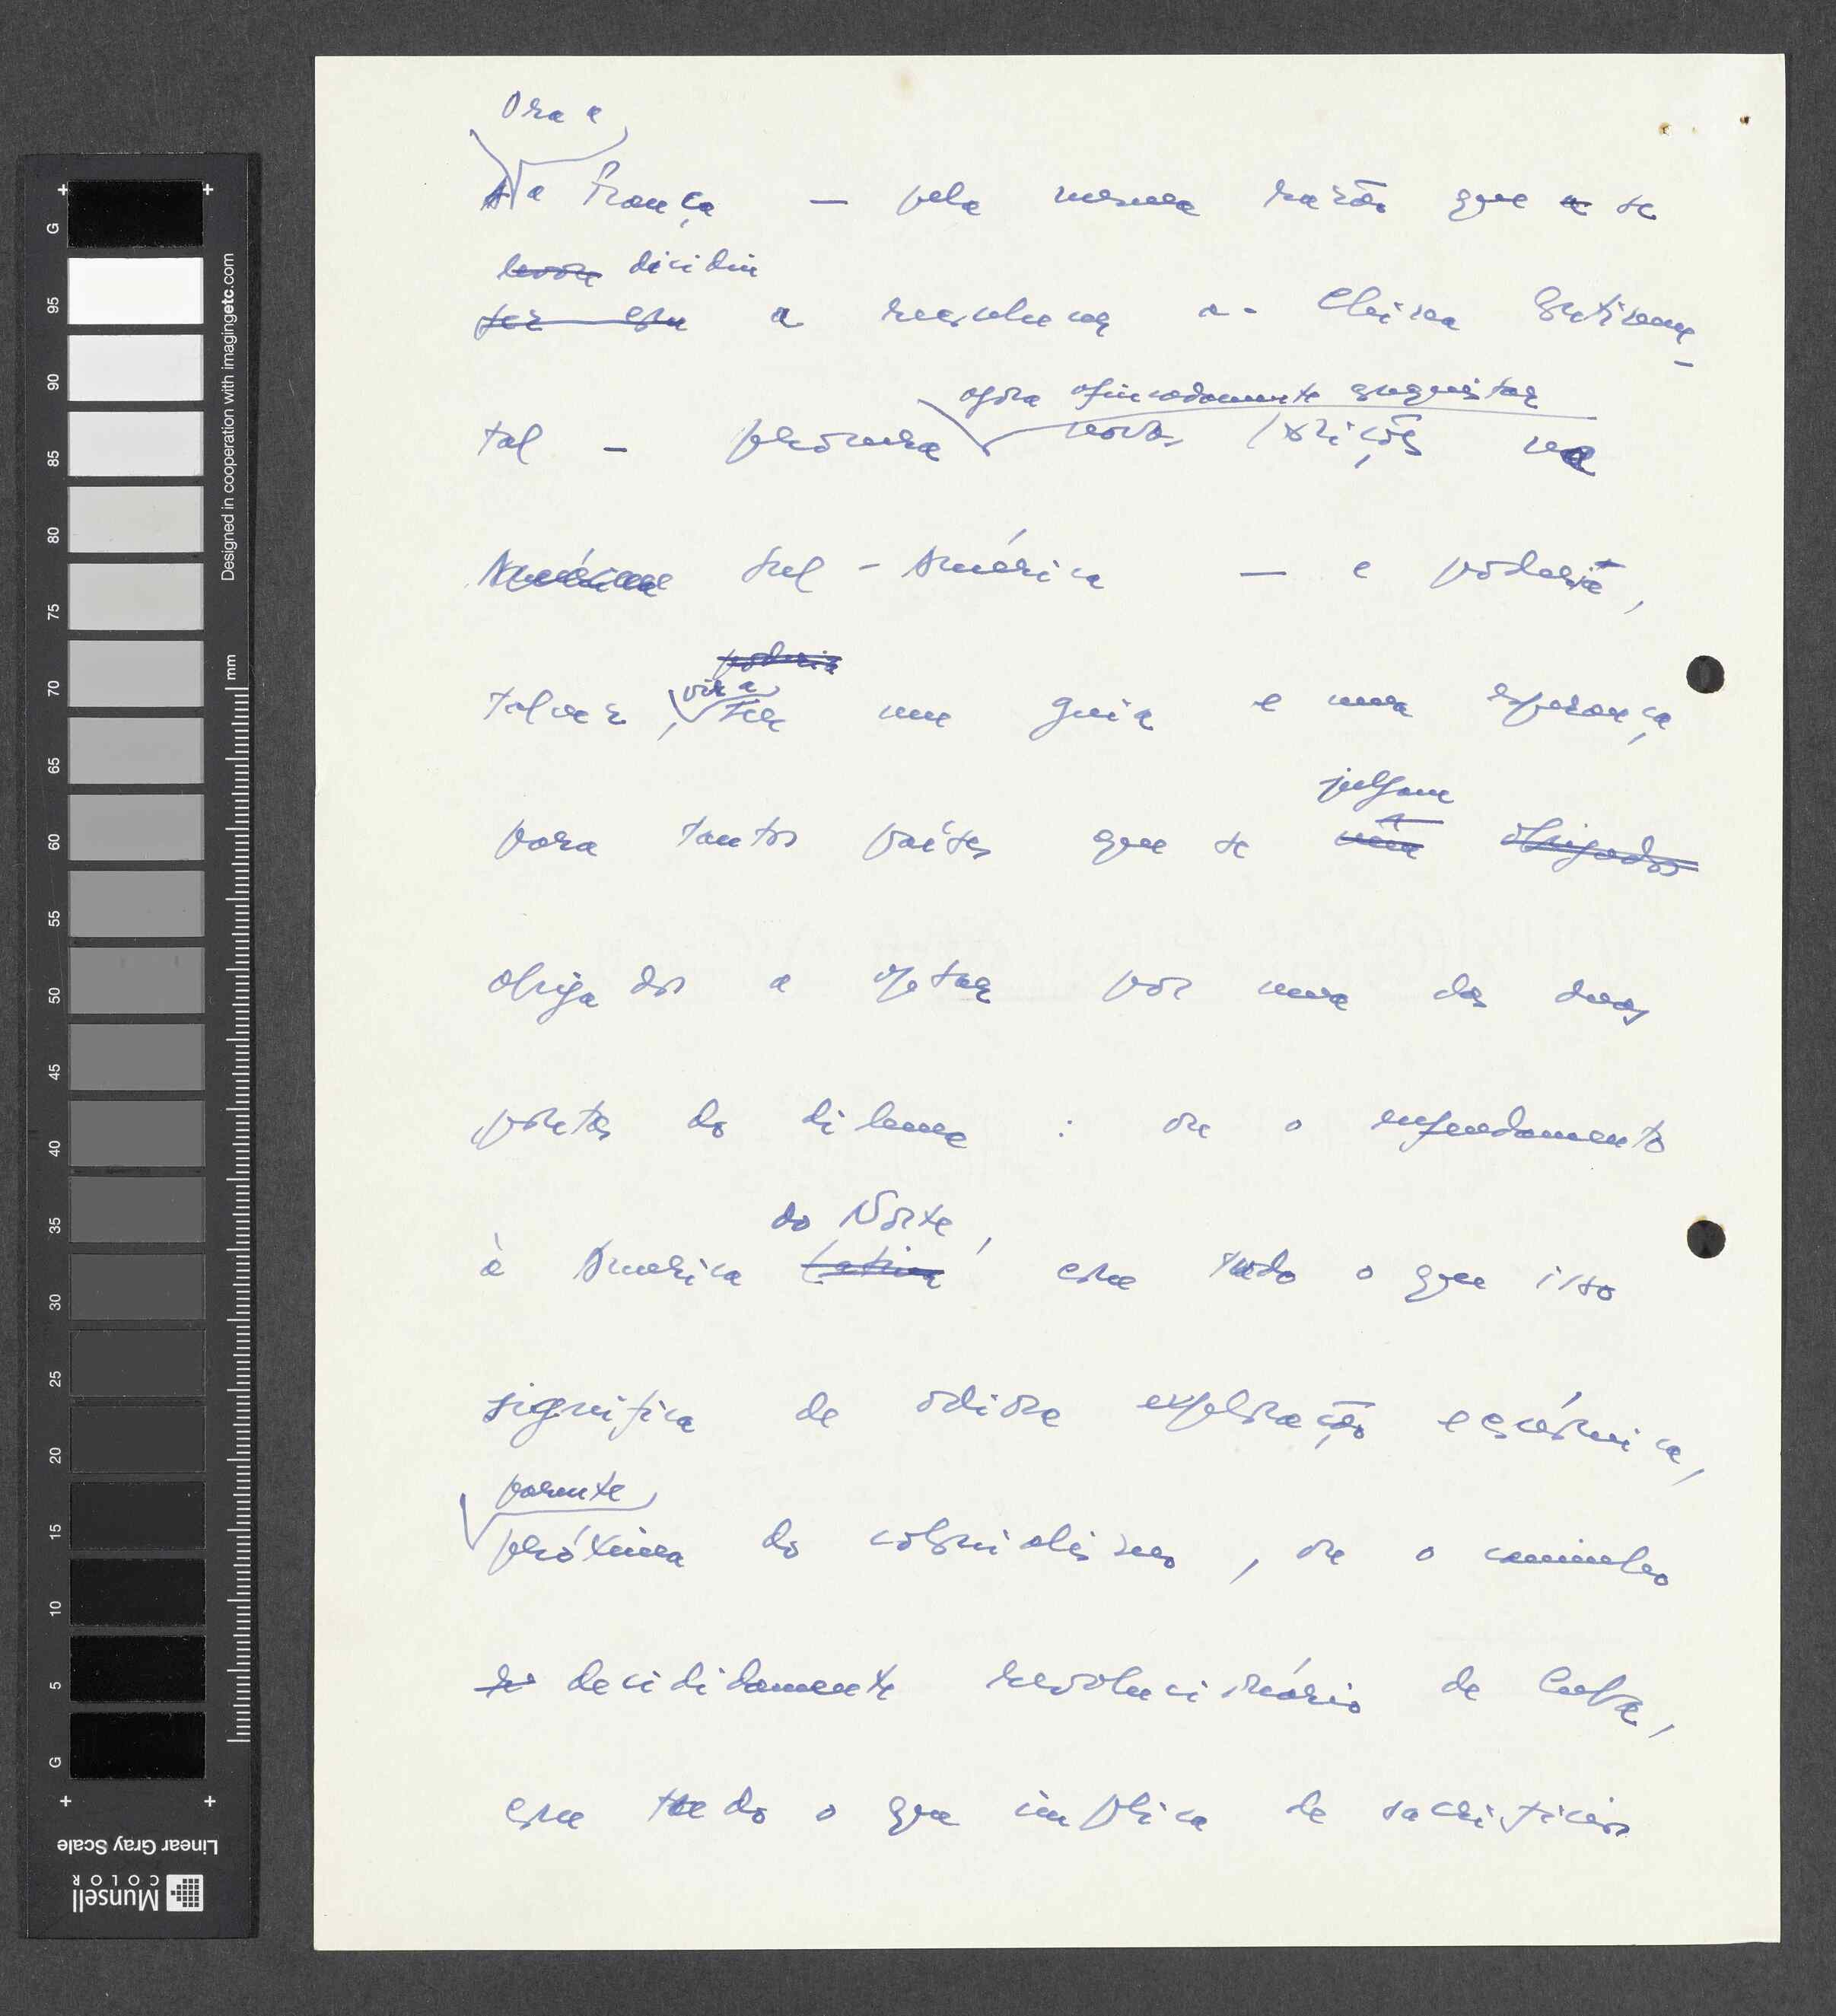 Ora a
A França — pela mesma razão que a se
levou decidiu
fez com a reconhecer a China Continen-
agora afincadamente conquistar
tal — procura novas posições na
América Sul-América — e poderia,
poderia
vir a
talvez, ser um guia e uma esperança
para tantos países que se vêm obrigados
julgam
obrigados a optar por uma das duas
pontas do dilema : ou o enfeudamento
do Norte,
à América Latina com tudo o que isso
significa de odiosa exploração económica,
parente
próxima do colonialismo, ou o caminho
decididamente revolucionário de Cuba,
com tudo o que implica de sacrifícios
G
95
90
85
80
75
70
65
60
55
50
45
40
35
30
25
20
15
10
5
G
mm
Designed in cooperation with imagingetc.com
Linear Gray Scale
Munsell
COLOR